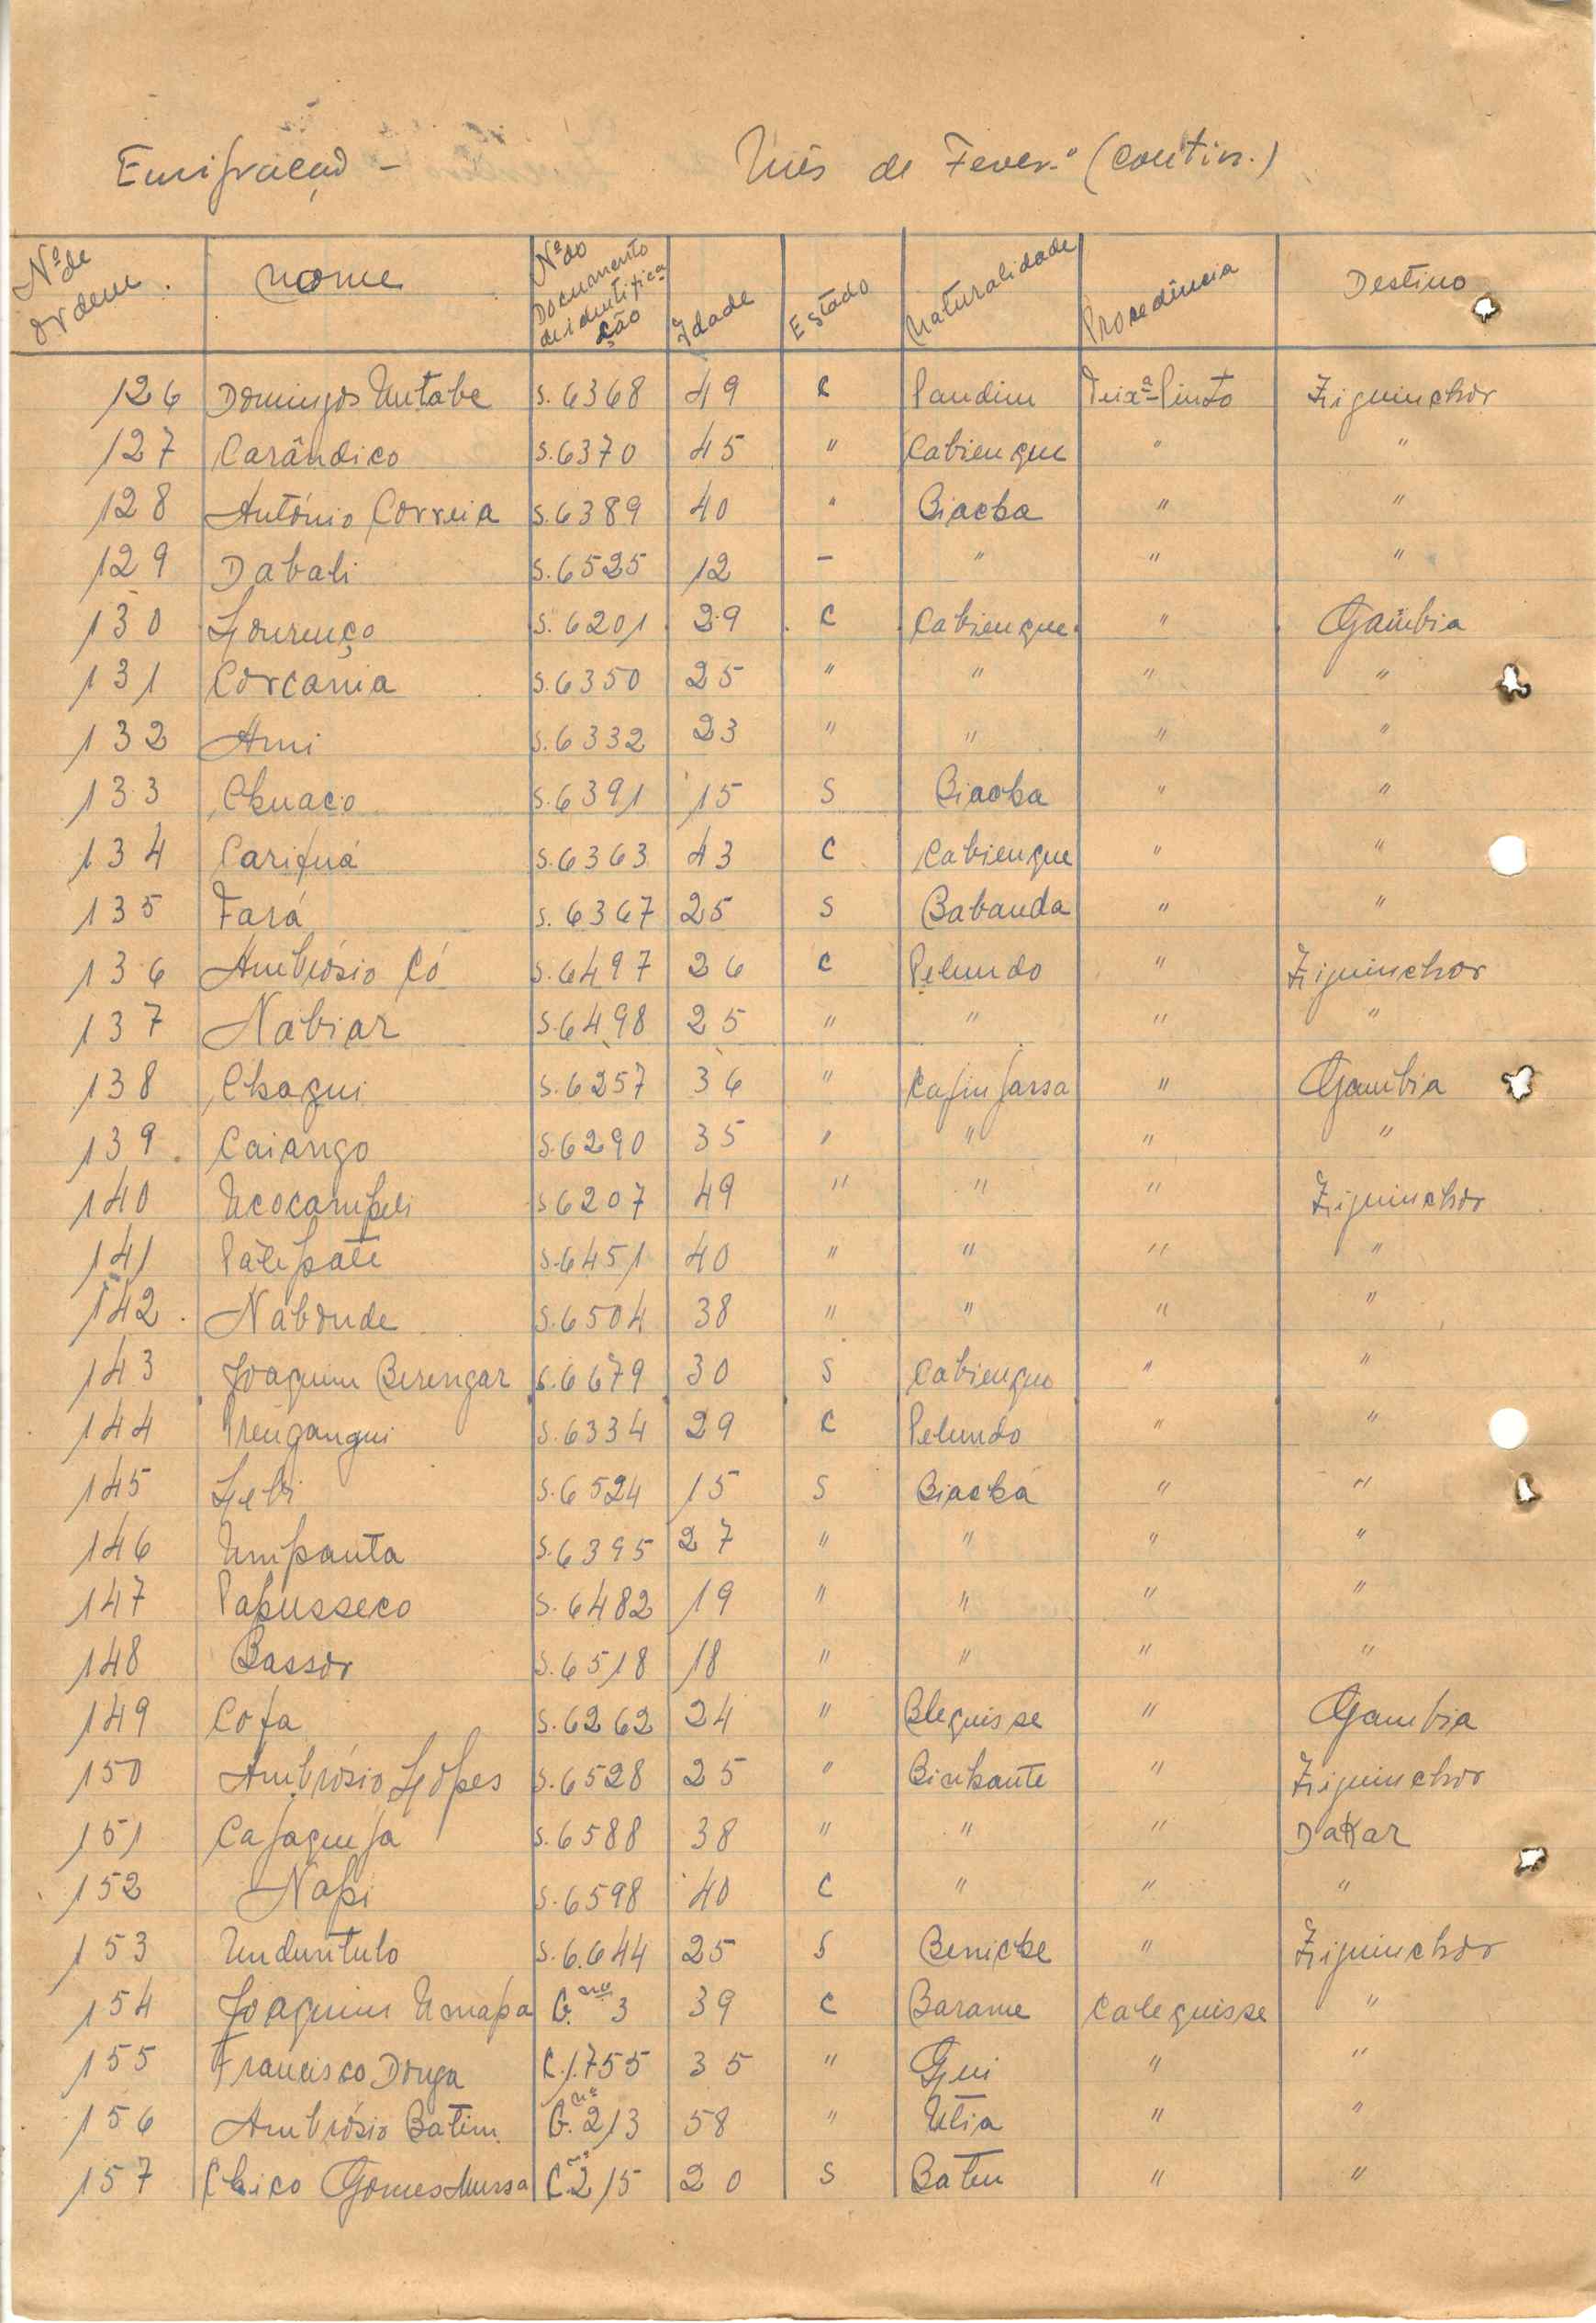 Emigração - Mês de Fever.º (contin.)
Nº de ordem Nome Nº do Documento de identificação Idade Estado Naturalidade Procedência Destino
126 Domingos Untabe S. 6368 49 C Pandim Teix.ª Pinto Ziguinchor
127 Carândico S. 6370 45 " Cabienque " "
128 António Correia S. 6389 40 " Biacha " "
129 Dabali S. 6525 12 - " " "
130 Lourenço S. 6201 29 C Cabienque " Gambia
131 Corcania S. 6350 25 " " " "
132 Ami S. 6332 23 " " " "
133 Chuaco S. 6391 15 S Biacha " "
134 Carifuá S. 6363 43 C Cabienque " "
135 Fará S. 6367 25 S Babanda " "
136 Ambrósio Có S. 6497 26 C Pelundo " Ziguinchor
137 Nabiar S. 6498 25 " " " "
138 Chagui S. 6257 36 " Cajinjassa " Gambia
139 Caiango S. 6290 35 " " " "
140 Ucocampeli S 6207 49 " " " Ziguinchor
141 Patepate S. 6451 40 " " " "
142 Nabonde S. 6504 38 " " " "
143 Joaquim Berengar S. 6679 30 S Cabienque " "
144 Prengangui S. 6334 29 C Pelundo " "
145 Lebi S. 6524 15 S Biacha " "
146 Umpanta S. 6395 27 " " " "
147 Papusseco S. 6482 19 " " " "
148 Bassor S. 6518 18 " " " "
149 Cofa S. 6262 24 " Blequisse " Gambia
150 Ambrósio Lopes S. 6528 25 " Binhante " Ziguinchor
151 Cajaguja S. 6588 38 " " " Dakar
152 Napi S. 6598 40 C " " "
153 Unduntulo S. 6.644 25 S Beniche " Ziguinchor
154 Joaquim Umapa G. nº 3 39 C Barame Calequisse "
155 Francisco Donga C. 1.755 35 " Gui " "
156 Ambrósio Batim G. nº 213 58 " Utia " "
157 Chico Gomes Mussa C. nº 215 20 S Batu " "